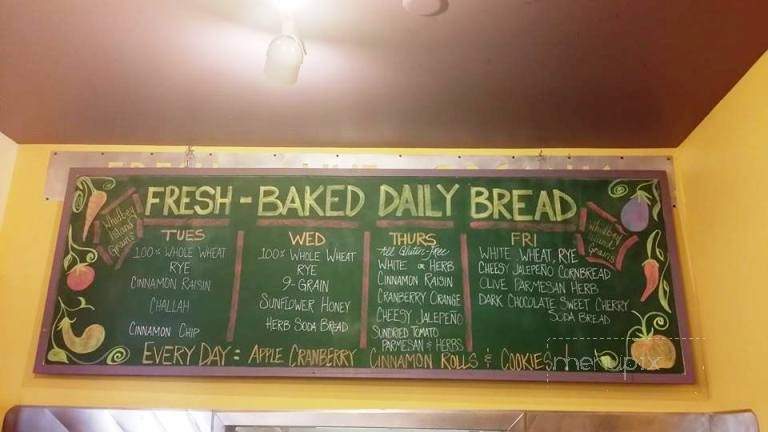 FRESH-BAKED DAILY BREAD
Whidbey
Island
Grains
TUES
100% WHOLE WHEAT
RYE
CINNAMON RAISIN
CHALLAH
CINNAMON CHIP
WED
100% WHOLE WHEAT
RYE
9-GRAIN
SUNFLOWER HONEY
HERB SODA BREAD
THURS
All Gluten-Free
WHITE or HERB
CINNAMON RAISIN
CRANBERRY ORANGE
CHEESY JALEPEÑO
SUNDRIED TOMATO
PARMESAN & HERBS
FRI
WHITE WHEAT, RYE
CHEESY JALEPEÑO CORNBREAD
OLIVE PARMESAN HERB
DARK CHOCOLATE SWEET CHERRY
SODA BREAD
Whidbey
Island
Grains
EVERY DAY: APPLE CRANBERRY CINNAMON ROLLS & COOKIES
menupix